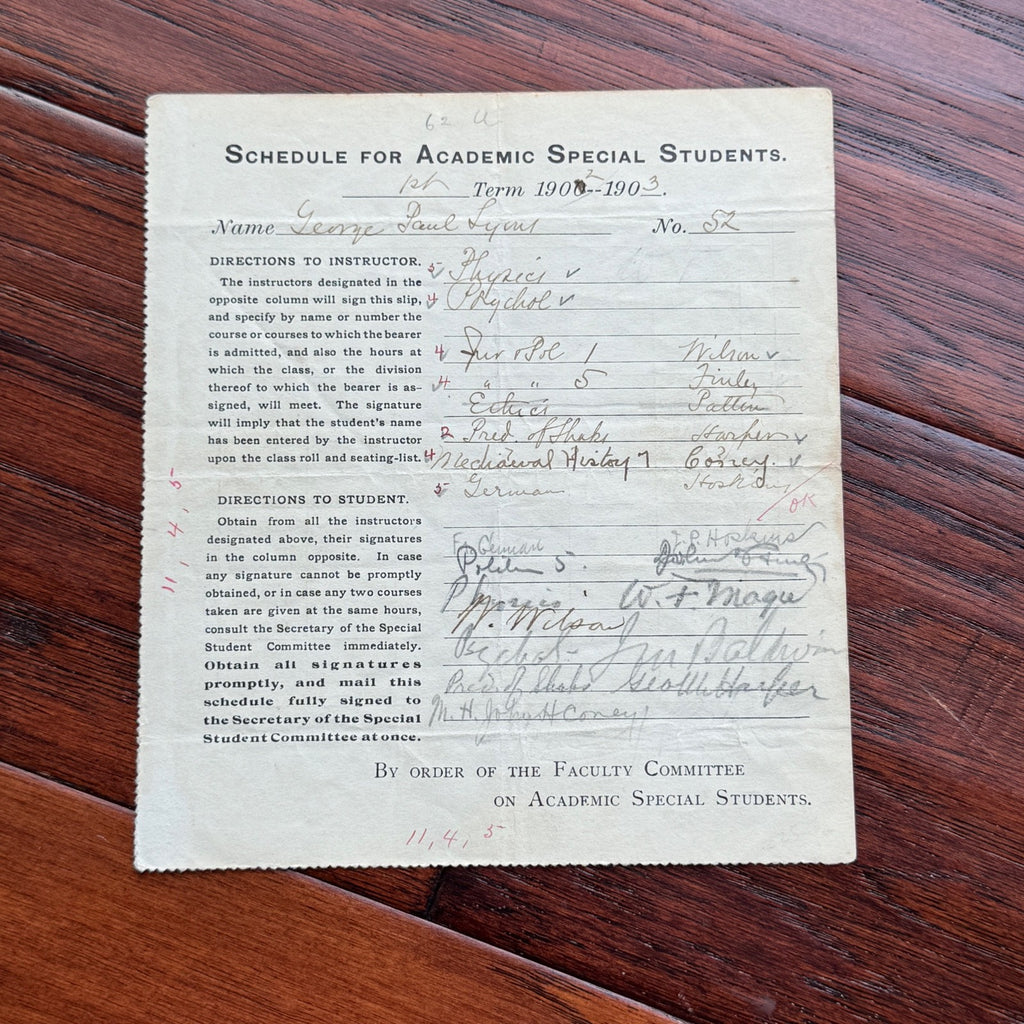 62
SCHEDULE FOR ACADEMIC SPECIAL STUDENTS.
1st Term 1902--1903.
Name George Paul Lyons No. 52
DIRECTIONS TO INSTRUCTOR.
The instructors designated in the
opposite column will sign this slip,
and specify by name or number the
course or courses to which the bearer
is admitted, and also the hours at
which the class, or the division
thereof to which the bearer is as-
signed, will meet. The signature
will imply that the student's name
has been entered by the instructor
upon the class roll and seating-list.
DIRECTIONS TO STUDENT.
Obtain from all the instructors
designated above, their signatures
in the column opposite. In case
any signature cannot be promptly
obtained, or in case any two courses
taken are given at the same hours,
consult the Secretary of the Special
Student Committee immediately.
Obtain all signatures
promptly, and mail this
schedule fully signed to
the Secretary of the Special
Student Committee at once.
5 ✓ Physics ✓
4 ✓ Psychol ✓
4 ✓ Jur & Pol 1 Wilson ✓
4 ✓ " " 5 Finley
Ethics Patton
2 Pred. of Shaks Harper ✓
4 Mediaeval History 7 Coney. ✓
5 German Hoskins
OK
German J. P. Hoskins
5. John H Finley
Physics W. F. Magie
W. Wilson
Psychol - Baldwin
Pred. of Shaks Geo M Harper
M. H. John H Coney
BY ORDER OF THE FACULTY COMMITTEE
ON ACADEMIC SPECIAL STUDENTS.
11, 4, 5
11, 4, 5